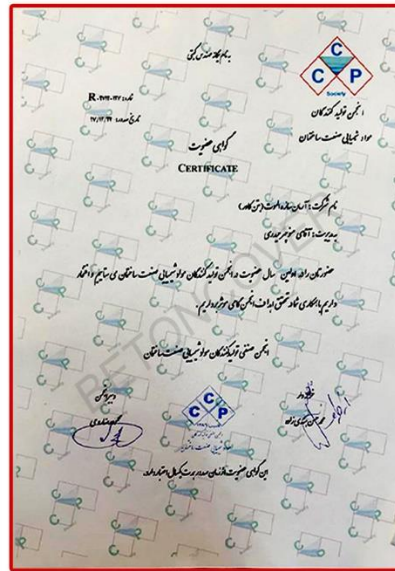 به نام یگانه مهندس گیتی
C
C P
Society
انجمن تولید کنندگان
مواد شیمیایی صنعت ساختمان
شماره: R
تاریخ صدور:
گواهی عضویت
CERTIFICATE
نام شرکت: آسان سازه الموت (بتن کاور)
به مدیریت: آقای منوچهر حیدری
حضورتان را در اولین سال عضویت در انجمن تولید کنندگان مواد شیمیایی صنعت ساختمان می ستاییم و افتخار
داریم با همکاری شما در تحقق اهداف انجمن گامی موثر برداریم.
انجمن صنفی تولید کنندگان مواد شیمیایی صنعت ساختمان
دبیر انجمن
خزانه دار
C
C P
این گواهی عضویت از زمان صدور به مدت یکسال اعتبار دارد.
BETONCOVER